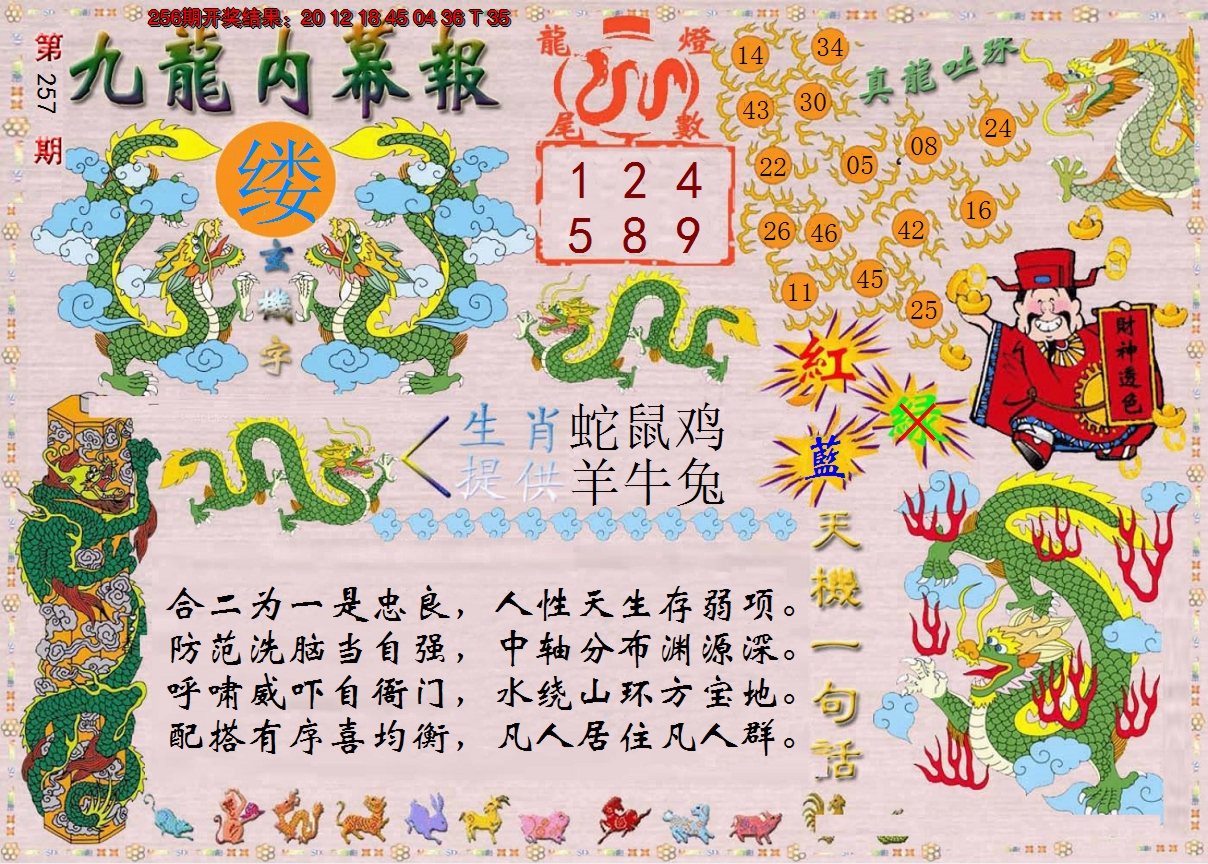 256期开奖结果：20 12 18 45 04 36 T 35
第257期
九龍内幕報
缕
玄機字
龍燈尾數
1 2 4
5 8 9
真龍吐珠
14 34
43 30
22 05 08 24
26 46 42 16
11 45 25
紅
緑
藍
財神透色
生肖 蛇鼠鸡
提供 羊牛兔
天機一句話
合二为一是忠良，人性天生存弱项。
防范洗脑当自强，中轴分布渊源深。
呼啸威吓自衙门，水绕山环方宝地。
配搭有序喜均衡，凡人居住凡人群。